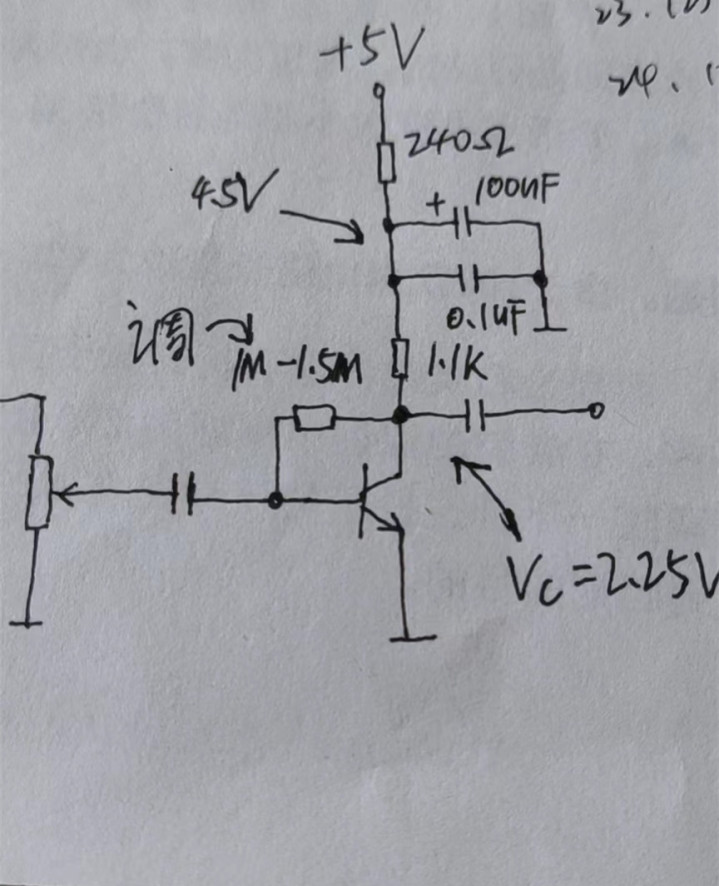 23.(2)
24.
+5V
240Ω
100uF
+
4.5V
0.1uF
调
1M-1.5M
1.1K
VC=2.25V